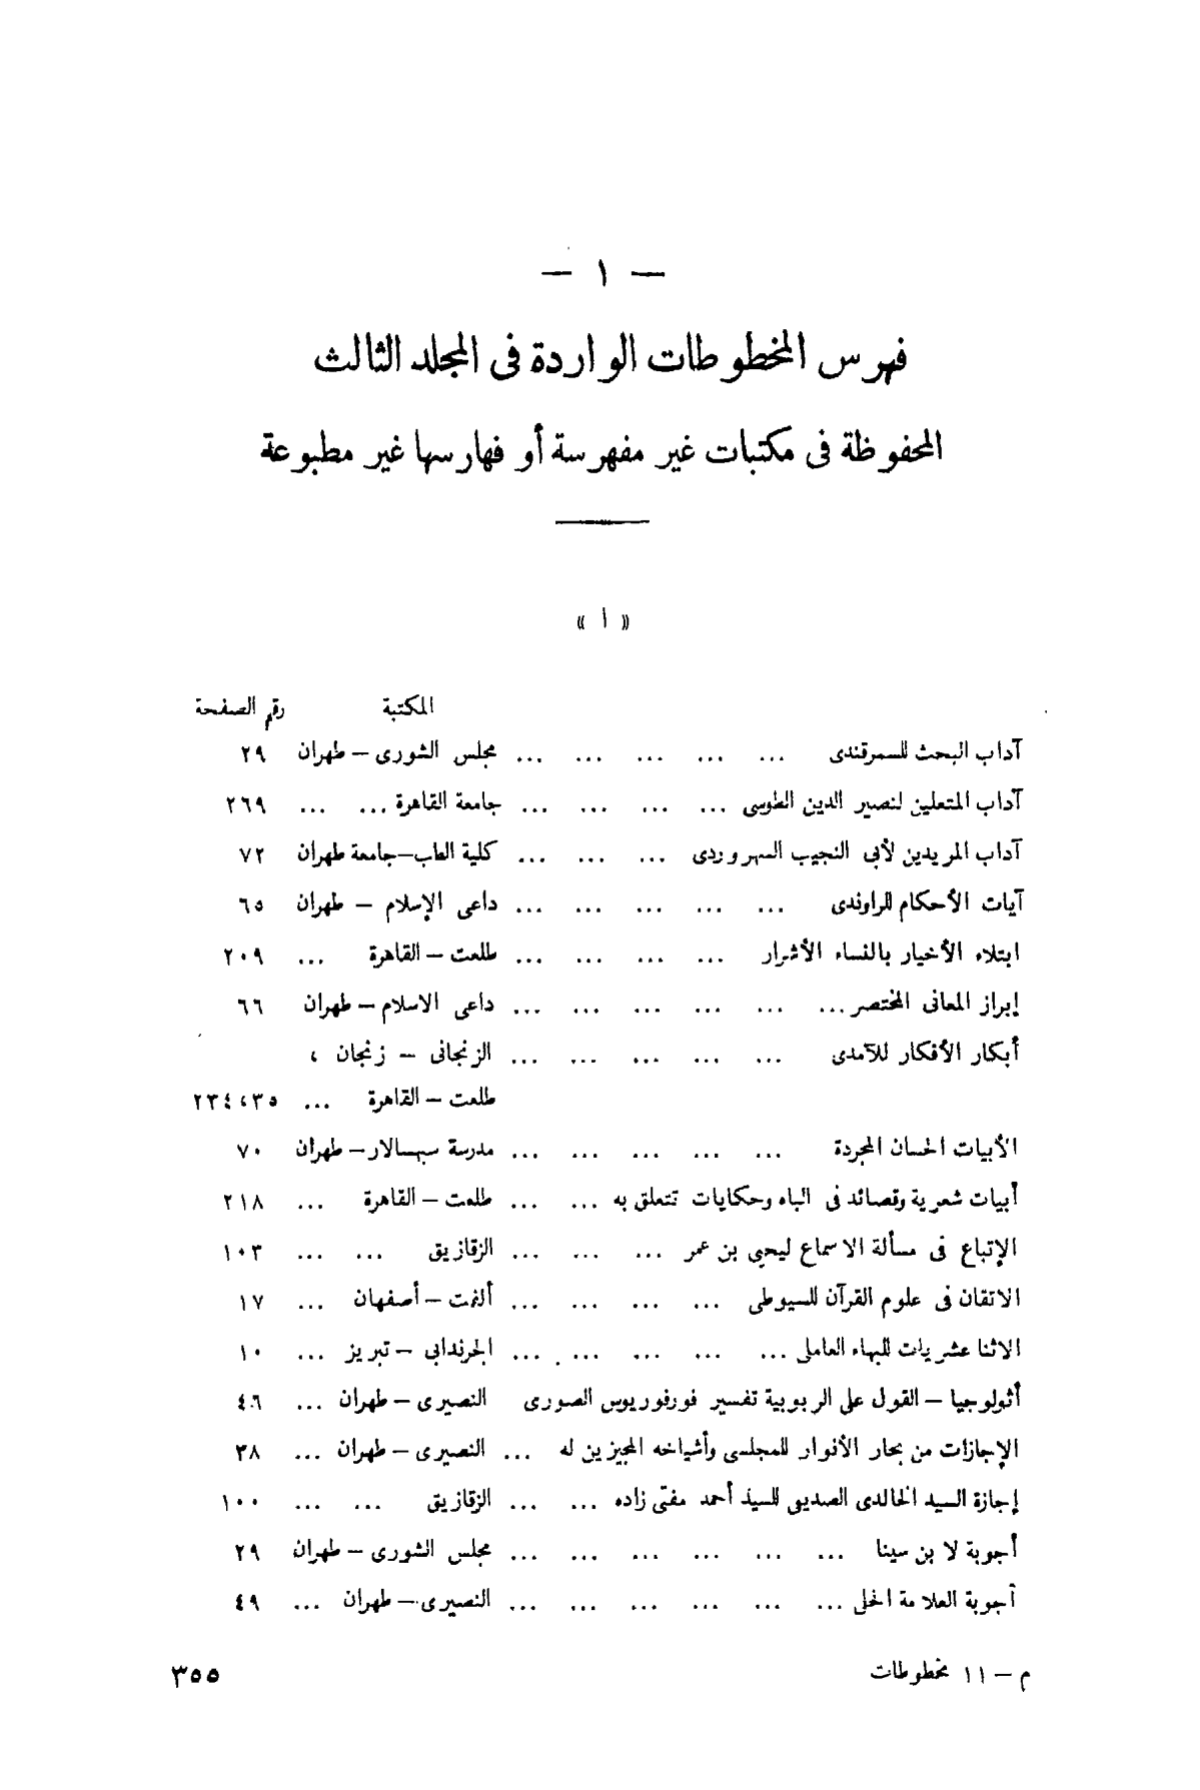 — ١ —
فهرس المخطوطات الواردة فى المجلد الثالث
المحفوظة فى مكتبات غير مفهرسة أو فهارسها غير مطبوعة
« ا »
المكتبة رقم الصفحة
آداب البحث للسمرقندى ... ... ... ... ... مجلس الشورى – طهران ٢٩
آداب المتعلين لنصير الدين الطوسى ... ... ... ... جامعة القاهرة ... ... ٢٦٩
آداب المريدين لأبى النجيب السهروردى ... ... ... كلية الطب–جامعة طهران ٧٢
آيات الأحكام للراوندى ... ... ... ... ... داعى الإسلام – طهران ٦٥
ابتلاء الأخيار بالنساء الأشرار ... ... ... ... طلعت – القاهرة ... ٢٠٩
إبراز المعانى المختصر ... ... ... ... ... ... داعى الاسلام – طهران ٦٦
أبكار الأفكار للآمدى ... ... ... ... ... الزنجانى – زنجان ،
طلعت – القاهرة ... ٢٣٤،٣٥
الأبيات الحسان المجردة ... ... ... ... ... مدرسة سپهسالار – طهران ٧٠
أبيات شعرية وقصائد فى الباه وحكايات تتعلق به ... ... طلعت – القاهرة ... ٢١٨
الإتباع فى مسألة الاسماع ليحيى بن عمر ... ... ... الزقازيق ... ... ١٠٣
الاتقان فى علوم القرآن للسيوطى ... ... ... ... ألفت – أصفهان ... ١٧
الاثنا عشريات للبهاء العاملى ... ... ... ... ... الجرندابى – تبريز ... ١٠
أثولوجيا – القول على الربوبية تفسير فورفوريوس الصورى النصيرى – طهران ... ٤٦
الإجازات من بحار الأنوار للمجلسى وأشياخه المجيزين له ... النصيرى – طهران ... ٣٨
إجازة السيد الخالدى الصديقى للسيد أحمد مفتى زاده ... ... الزقازيق ... ... ١٠٠
أجوبة لابن سينا ... ... ... ... ... ... مجلس الشورى – طهران ٢٩
أجوبة العلامة الحلى ... ... ... ... ... ... النصيرى – طهران ... ٤٩
م – ١١ مخطوطات ٣٥٥